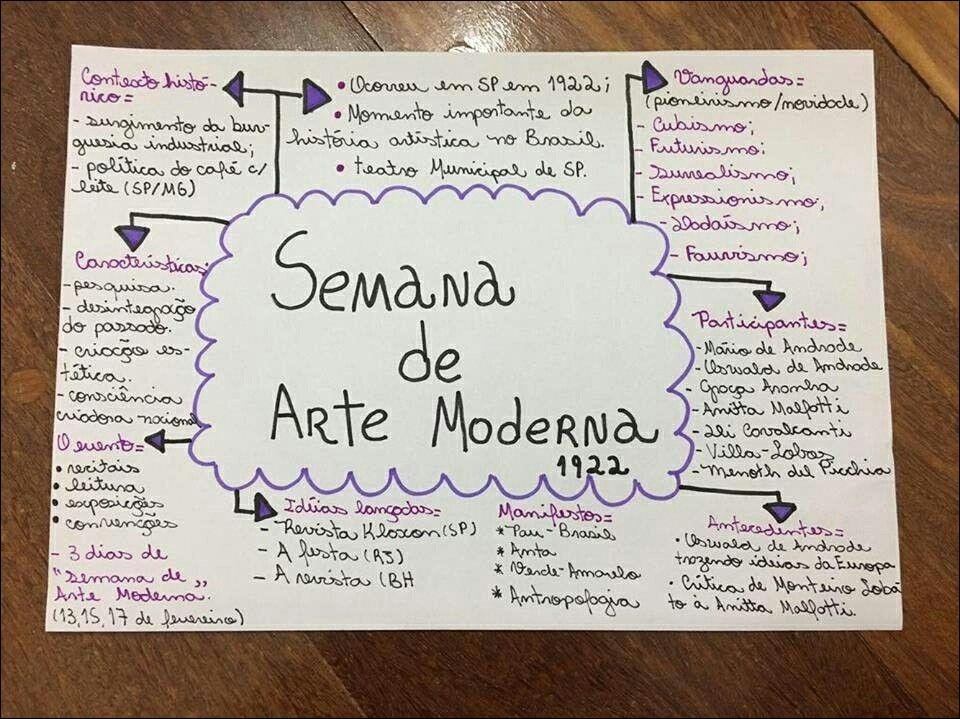 Contexto histó-
rico=
- surgimento da bur-
guesia industrial;
- política do café c/
leite (SP/MG)
• Ocorreu em SP em 1922;
• Momento importante da
história artística no Brasil.
• teatro Municipal de SP.
Vanguardas=
(pioneirismo/novidade)
- Cubismo;
- Futurismo;
- Surrealismo;
- Expressionismo;
- Dadaísmo;
- Fauvismo;
Características:
- pesquisa.
- desintegração
do passado.
- criação es-
tética.
- consciência
criadora nacional
Semana
de
Arte Moderna
1922
Participantes=
- Mário de Andrade
- Oswald de Andrade
- Graça Aranha
- Anitta Malfotti
- Di Cavalcanti
- Villa-Lobos
- Menoth del Picchia
O evento=
• recitais
• leitura
• exposições
• convenções
- 3 dias de
"Semana de
Arte Moderna."
(13,15,17 de fevereiro)
Idéias lançadas=
- Revista Kloxon (SP)
- A festa (RJ)
- A revista (BH
Manifestos=
* Pau-Brasil
* Anta
* Verde-Amarelo
* Antropofagia
Antecedentes=
• Oswald de Andrade
trazendo idéias da Europa
• Crítica de Monteiro Lobá-
to à Anitta Malfotti.